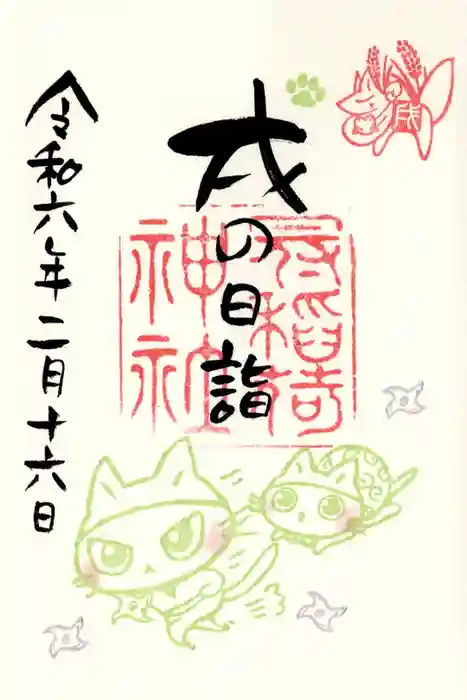 戌の日詣
令和六年二月十六日
戌